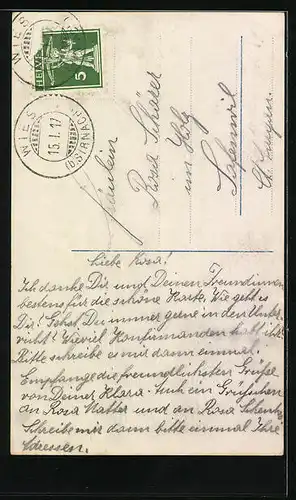 WIES
HELVETIA
5
WIES
15.I.17
(B. SIRNACH)
Fräulein
Rosa Schärer
im Holz
Safenwil
Kt. Aargau.
Liebe Rosa!
Ich danke Dir und Deinen Freundinnen
bestens für die schöne Karte. Wie geht es
Dir? Gehst Du immer gerne in den Unter-
richt? Wieviel Konfirmanden habt ihr?
Bitte schreibe es mir dann einmal.
Empfange die freundlichsten Grüsse
von Deiner Klara. Auch ein Grüsschen
an Rosa Matter und an Rosa
Schreibe mir dann bitte einmal Ihre
Adressen.